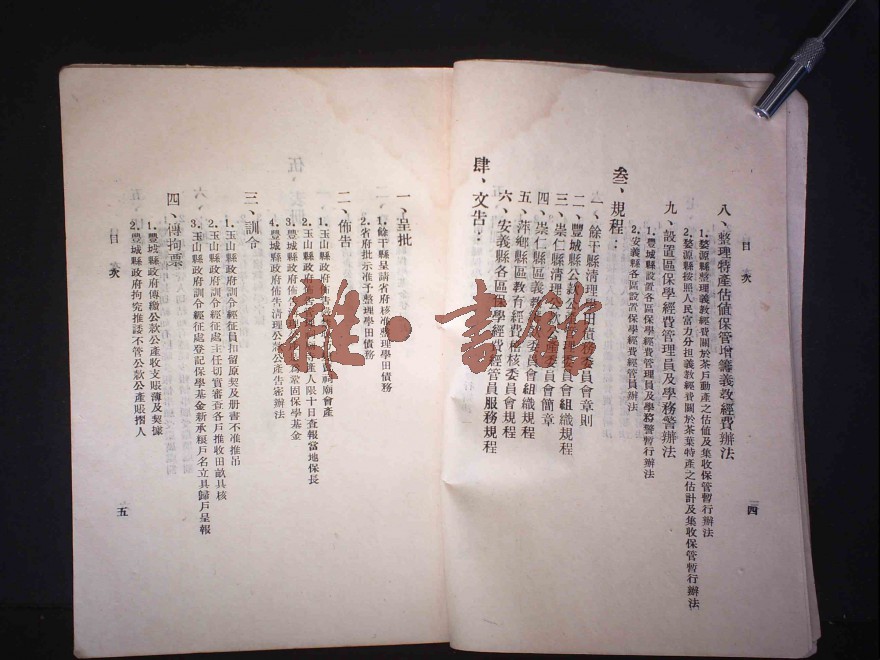 目次
八、整理特產估値保管增籌義教經費辦法
1.婺源縣整理義教經費關於茶戶動產之估値及集收保管暫行辦法
2.婺源縣按照人民富力分担義教經費關於茶葉特產之估計及集收保管暫行辦法
九、設置區保學經費管理員及學務警辦法
1.豐城縣設置各區保學經費管理員及學務警暫行辦法
2.安義縣各區設置保學經費經管員辦法
叁、規程：
一、餘干縣清理學田債務委員會章則
二、豐城縣公款公產委員會組織規程
三、崇仁縣清理公委員會組織規程
四、崇仁縣區義教委員會簡章
五、萍鄉縣區教育經費稽核委員會規程
六、安義縣各區保學經費經管員服務規程
肆、文告：
四
一、呈批
1.餘干縣呈請省府核准整理學田債務
2.省府批示准予整理學田債務
二、佈告
1.玉山縣政府佈告祠廟會產
2.玉山縣政府佈告產人限十日查報當地保長
3.豐城縣政府佈告鞏固保學基金
4.豐城縣政府佈告清理公款公產告密辦法
三、訓令
1.玉山縣政府訓令經征員扣留原契及册書不准推吊
2.玉山縣政府訓令經征處主任切實審查各戶推收田畝具核
3.玉山縣政府訓令經征處登記保學基金新承糧戶名立具歸戶呈報
四、傳拘票
1.豐城縣政府傳繳公款公產收支賬薄及契據
2.豐城縣政府拘究推諉不管公款公產賬摺人
目次
五
雜·書館